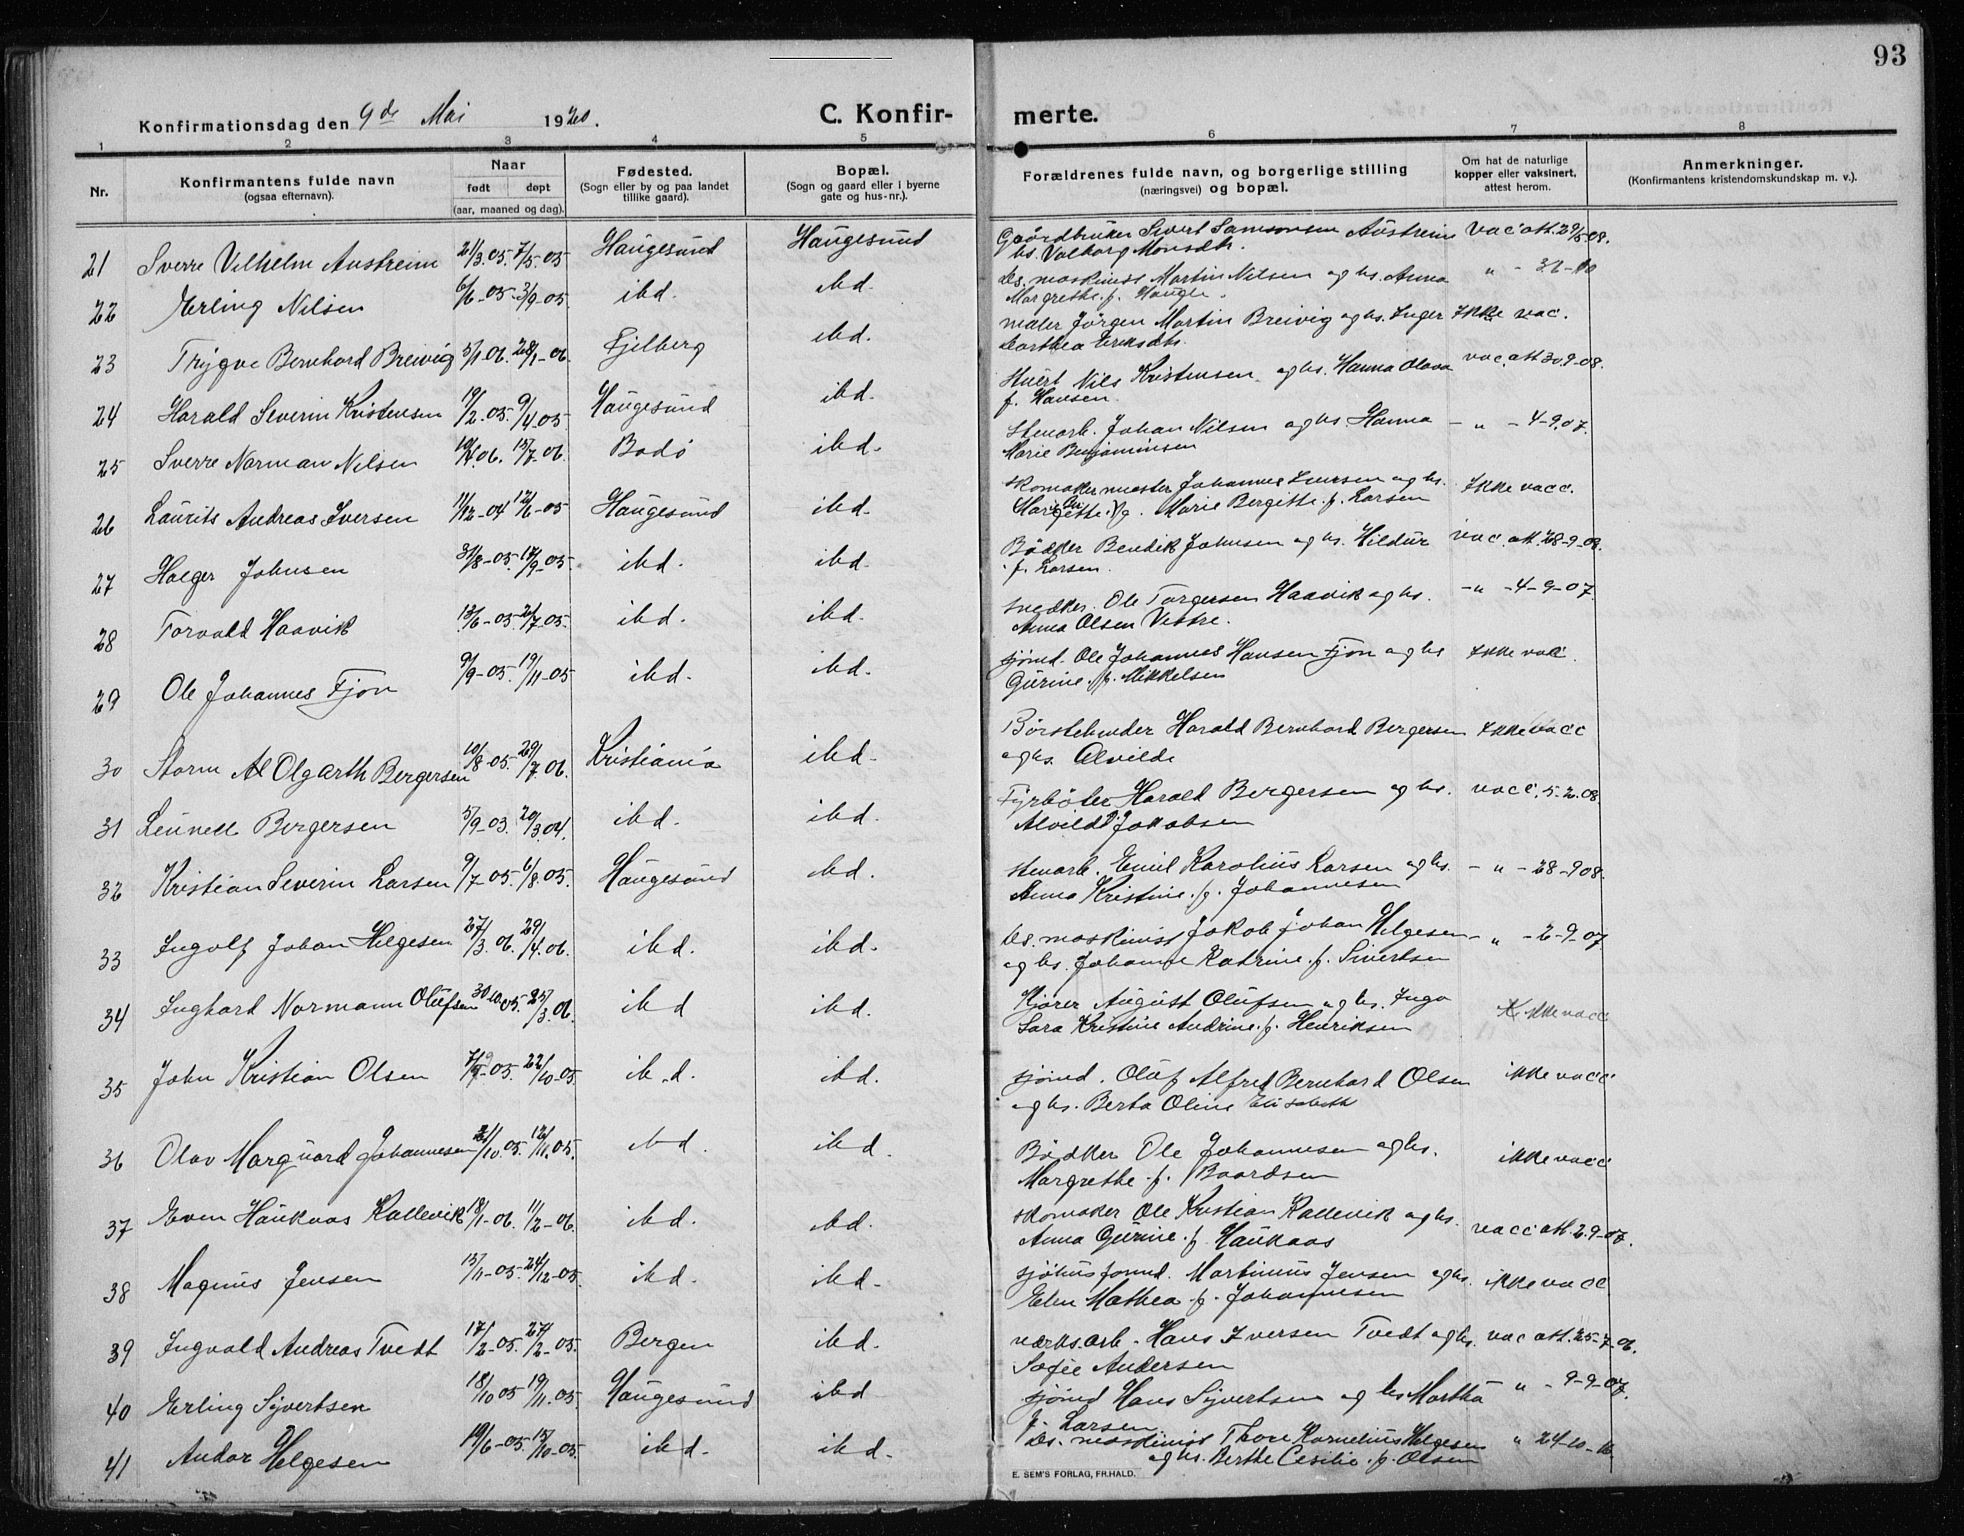 93
Konfirmationsdag den 9de Mai 1920.
C. Konfir- merte.
1 2 3 4 5 6 7 8
Nr.
Konfirmantens fulde navn
(ogsaa efternavn).
Naar
født døpt
(aar, maaned og dag).
Fødested.
(Sogn eller by og paa landet
tillike gaard).
Bopæl.
(Sogn og gaard eller i byerne
gate og hus-nr.).
Forældrenes fulde navn, og borgerlige stilling
(næringsvei) og bopæl.
Om hat de naturlige
kopper eller vaksinert,
attest herom.
Anmerkninger.
(Konfirmantens kristendomskundskap m. v.).
21 Sverre Vilhelm Austreim 21/3.05. 7/5.05 Haugesund Haugesund Gaardbruker Sivert Samsonsen Austreim vac att. 29/5-08.
hs. Valborg Monsdtr.
22 Erling Nilsen 6/6-05. 3/9.05. ibd. ibd. Ds. maskinist Martin Nilsen og hs. Anna
Margrethe f. Hauge.
23 Trygve Bernhard Breivig 5/1.06. 28/1-06. Fjelberg ibd. maler Jørgen Martin Breivig og hs. Inger Ikke vac.
Dorthea Eriksdtr.
24 Harald Severin Kristensen 19/2.05. 9/4.05 Haugesund ibd. Stuert Nils Kristensen og hs. Hanna Olava vac. att. 30.9-08.
f. Hansen.
25 Sverre Norman Nilsen 19/4.06. 15/7-06. Bodö ibd. Stenarb. Johan Nilsen og hs. Hanna - " - 4-9.07.
Marie Benjaminsen
26 Laurits Andreas Iversen 11/12-04 12/6-05 Haugesund ibd. Skomakermester Johannes Iversen og hs. Ikke vacc.
Marie Bergitte f. Larsen
27 Holger Johnsen 31/8-05. 17/9-05. ibd. ibd. Bødker Bendik Johnsen og hs. Hildur vac. att. 28-9-08.
f. Larsen.
28 Torvald Haavik 13/6-05. 2/7-05. ibd. ibd. snedker. Ole Torgersen Haavik og hs. - " - 4-9-07.
Anna Olsen Vestre.
29 Ole Johannes Fjon 9/9-05. 19/11-05 ibd. ibd. sjömd. Ole Johannes Hansen Fjon og hs Ikke vac.
Gürine f. Mikkelsen
30 Storm Al Olgarth Bergersen 10/8-05. 29/7.06. Kristiania ibd. Børstebinder Harald Bernhard Bergersen Ikke vacc
og hs. Alvilde
31 Lennell Bergersen 5/9-03. 20/3.04. ibd. ibd. Fyrböter Harald Bergersen og hs. vacc. 5-2.08.
Alvilde Jakobsen
32 Kristian Severin Larsen 9/7-05. 6/8.05. Haugesund ibd. Stenarb. Emil Karolius Larsen og hs. - " - 28-9 08.
Anna Kristine f. Johannesen
33 Ingolf Johan Helgesen 27/3.06. 29/4.06. ibd. ibd. Ds. maskinist Jakob Johan Helgesen - " - 2-9-07
og hs. Johanne Katrine f. Sivertsen
34 Inghard Normann Olufsen 30/10.05. 25/3.06. ibd ibd. Kjører August Olufsen og hs. Inga ikke vacc
Sara Kristine Andrine f. Henriksen
35 John Kristian Olsen 7/9-05. 22/10-05. ibd. ibd. sjömd. Oluf Alfred Bernhard Olsen ikke vacc
og hs. Berta Oline Elisabeth
36 Olav Marquard Johannesen /10.05. 12/11.05. ibd. ibd. Bødker Ole Johannesen og hs. ikke vacc
Margrethe f. Baardsen
37 Even Haukaas Kallevik 18/1-06. 11/2-06. ibd. ibd. skomaker Ole Kristian Kallevik og hs. vacc att. 2.9-07.
Anna Gürine f. Haukaas
38 Magnus Jensen 15/11-05. 24/12-05. ibd. ibd. sjöhusformd. Martinius Jensen og hs. ikke vacc
Elen Mathea f. Johannesen
39 Ingvald Andreas Tvedt 17/2-05. 27/2-05. Bergen ibd. verks.arb. Hans Iversen Tvedt og hs. vac att. 25-7-06.
Sofie Andersen
40 Erling Sijvertsen 18/10 05 19/11.05. Haugesund ibd sjömd Hans Sijvertsen og hs Martha " - 9-9-07.
f. Larsen
41 Andor Helgesen 19/6-05. 15/10-05. ibd. ibd. Ds. maskinist Thore Kornelius Helgesen " 24-10-10.
og hs. Berthe Cesilie f. Olsen
E. SEM'S FORLAG, FR.HALD.